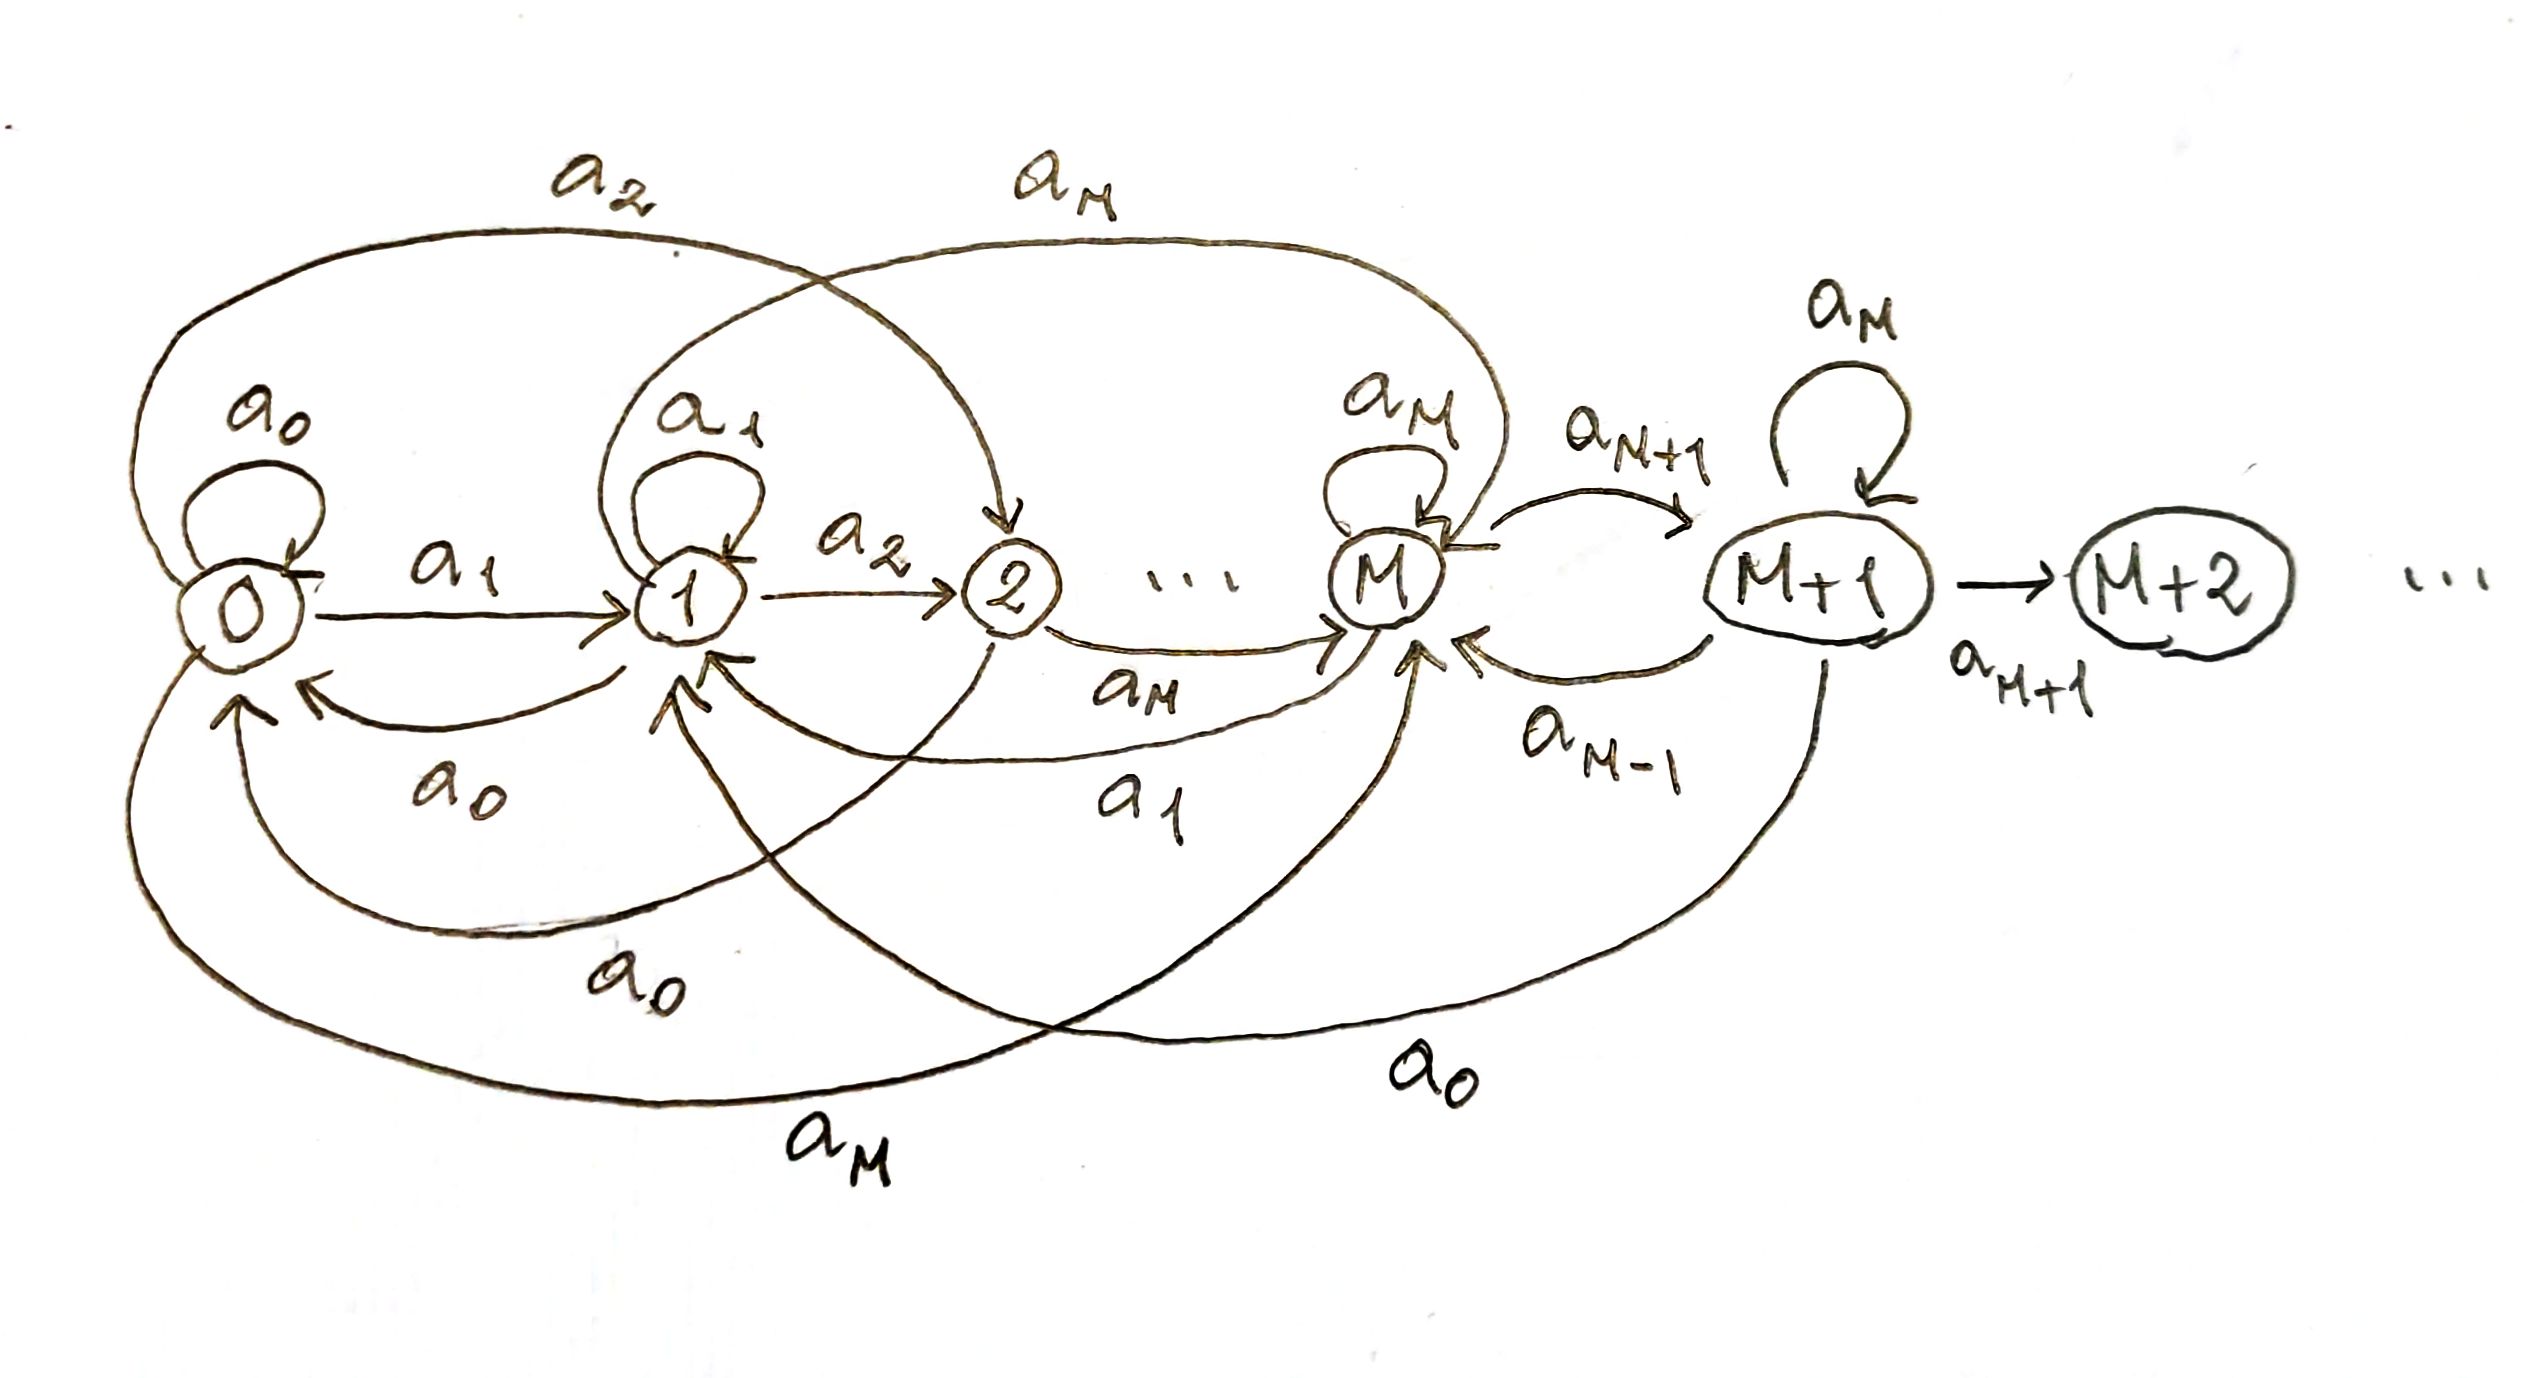 a₂ a_M
a_M
a₀ a₁ a_M a_{M+1}
a₁ a₂
0 1 2 ... M M+1 M+2 ...
a_M a_{M+1}
a₀ a₁ a_{M-1}
a₀
a₀
a_M